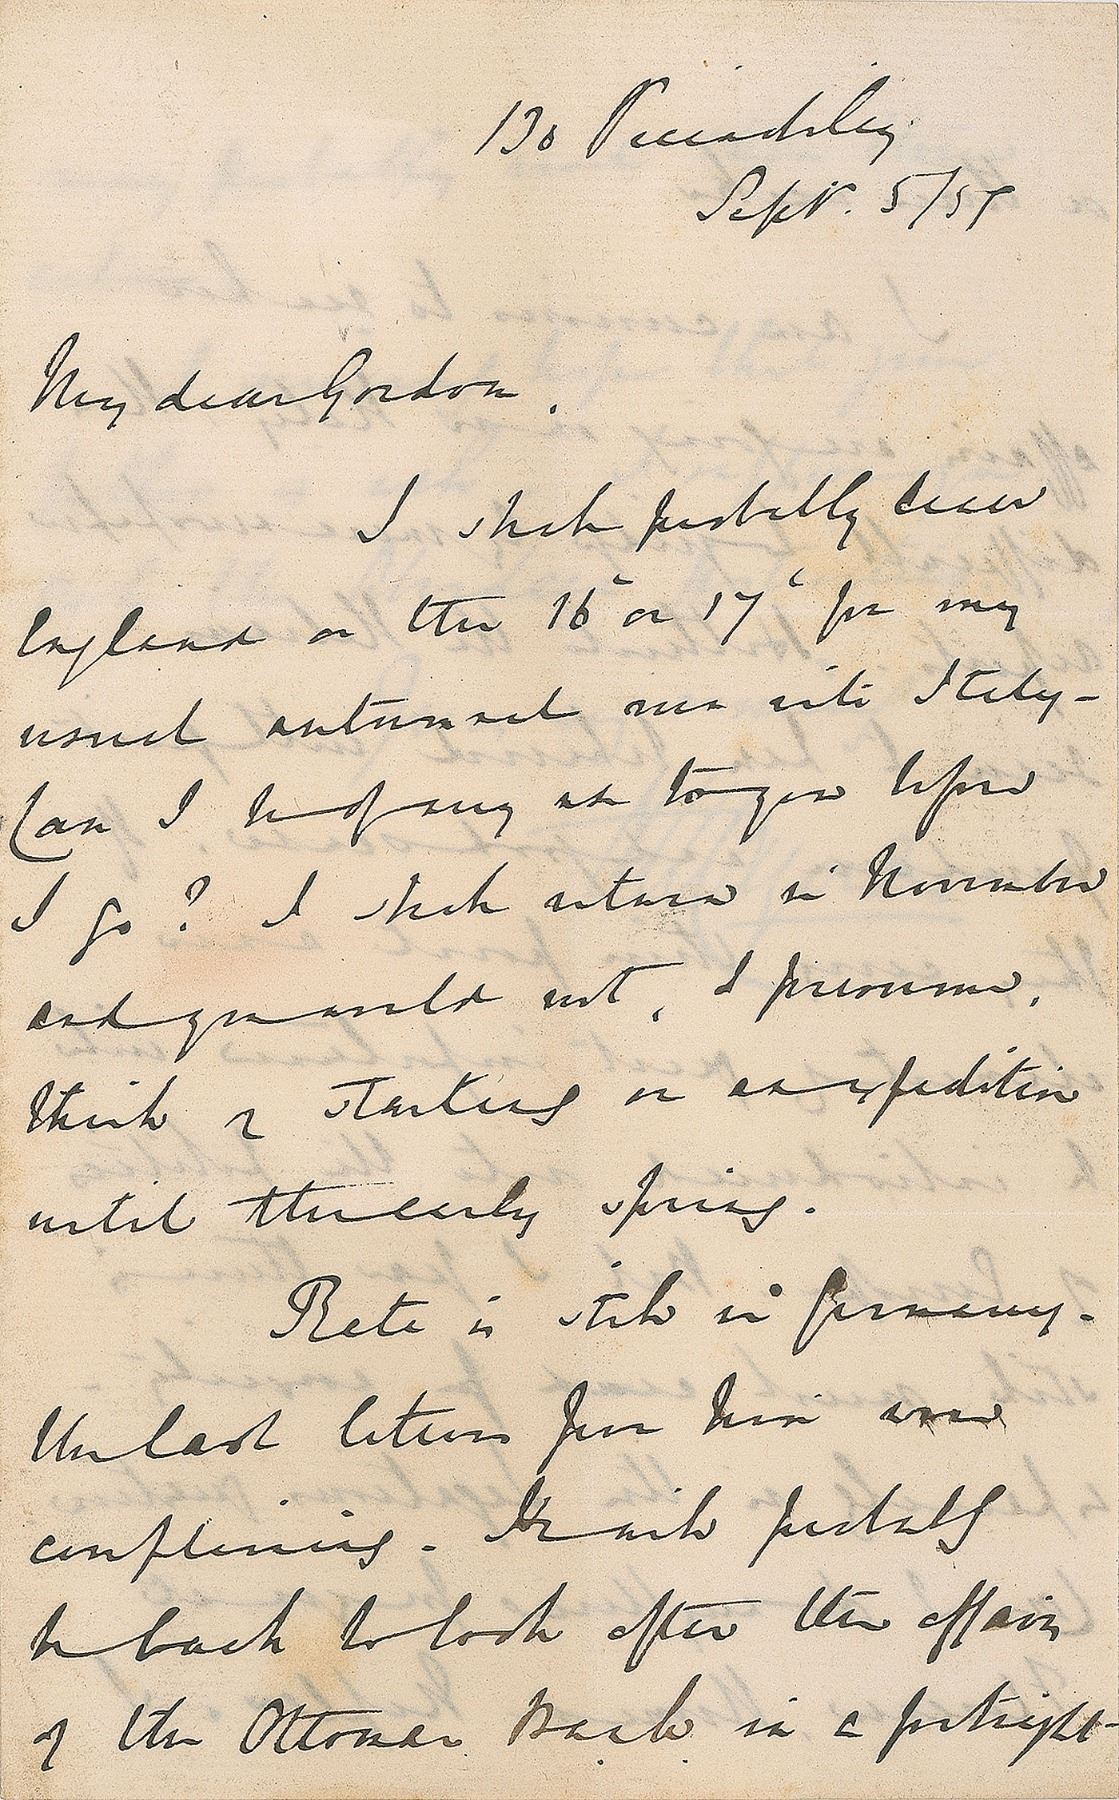 130 Piccadilly
Sept. 5/59
My dear Gordon.
I shall probably leave
England on the 16 or 17 for my
usual autumnal run into Italy -
Can I be of any use to you before
I go? I shall return in November
and you would not, I presume,
think of starting on an expedition
until the early spring.
is still in Germany -
The last letters from him were
complaining. He will probably
be back to look after the affairs
of the Ottoman Bank in a fortnight -